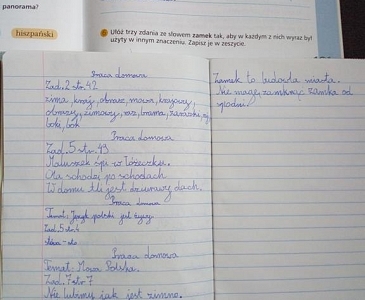 panorama?
hiszpański
6 Ułóż trzy zdania ze słowem zamek tak, aby w każdym z nich wyraz był
użyty w innym znaczeniu. Zapisz je w zeszycie.
Praca domowa
Zad. 2 str. 42
zima, kraj, obraz, mowa, krajowy,
obrazy, zimowy, raz, brama,
boki, bok
Praca domowa
Zad. 5 str. 43
Maluszek śpi w łóżeczku.
Ola schodzi po schodach.
W domu tli jest dziurawy dach.
Praca domowa
Temat: Język polski jest żywy
Zad. 5 str. 4
Praca domowa
Temat: Moja Polska.
Zad. 7 str 7
Nie lubimy jak jest zimno.
Zamek to budowla miasta.
Nie mogę zamknąć zamka od
spodni.